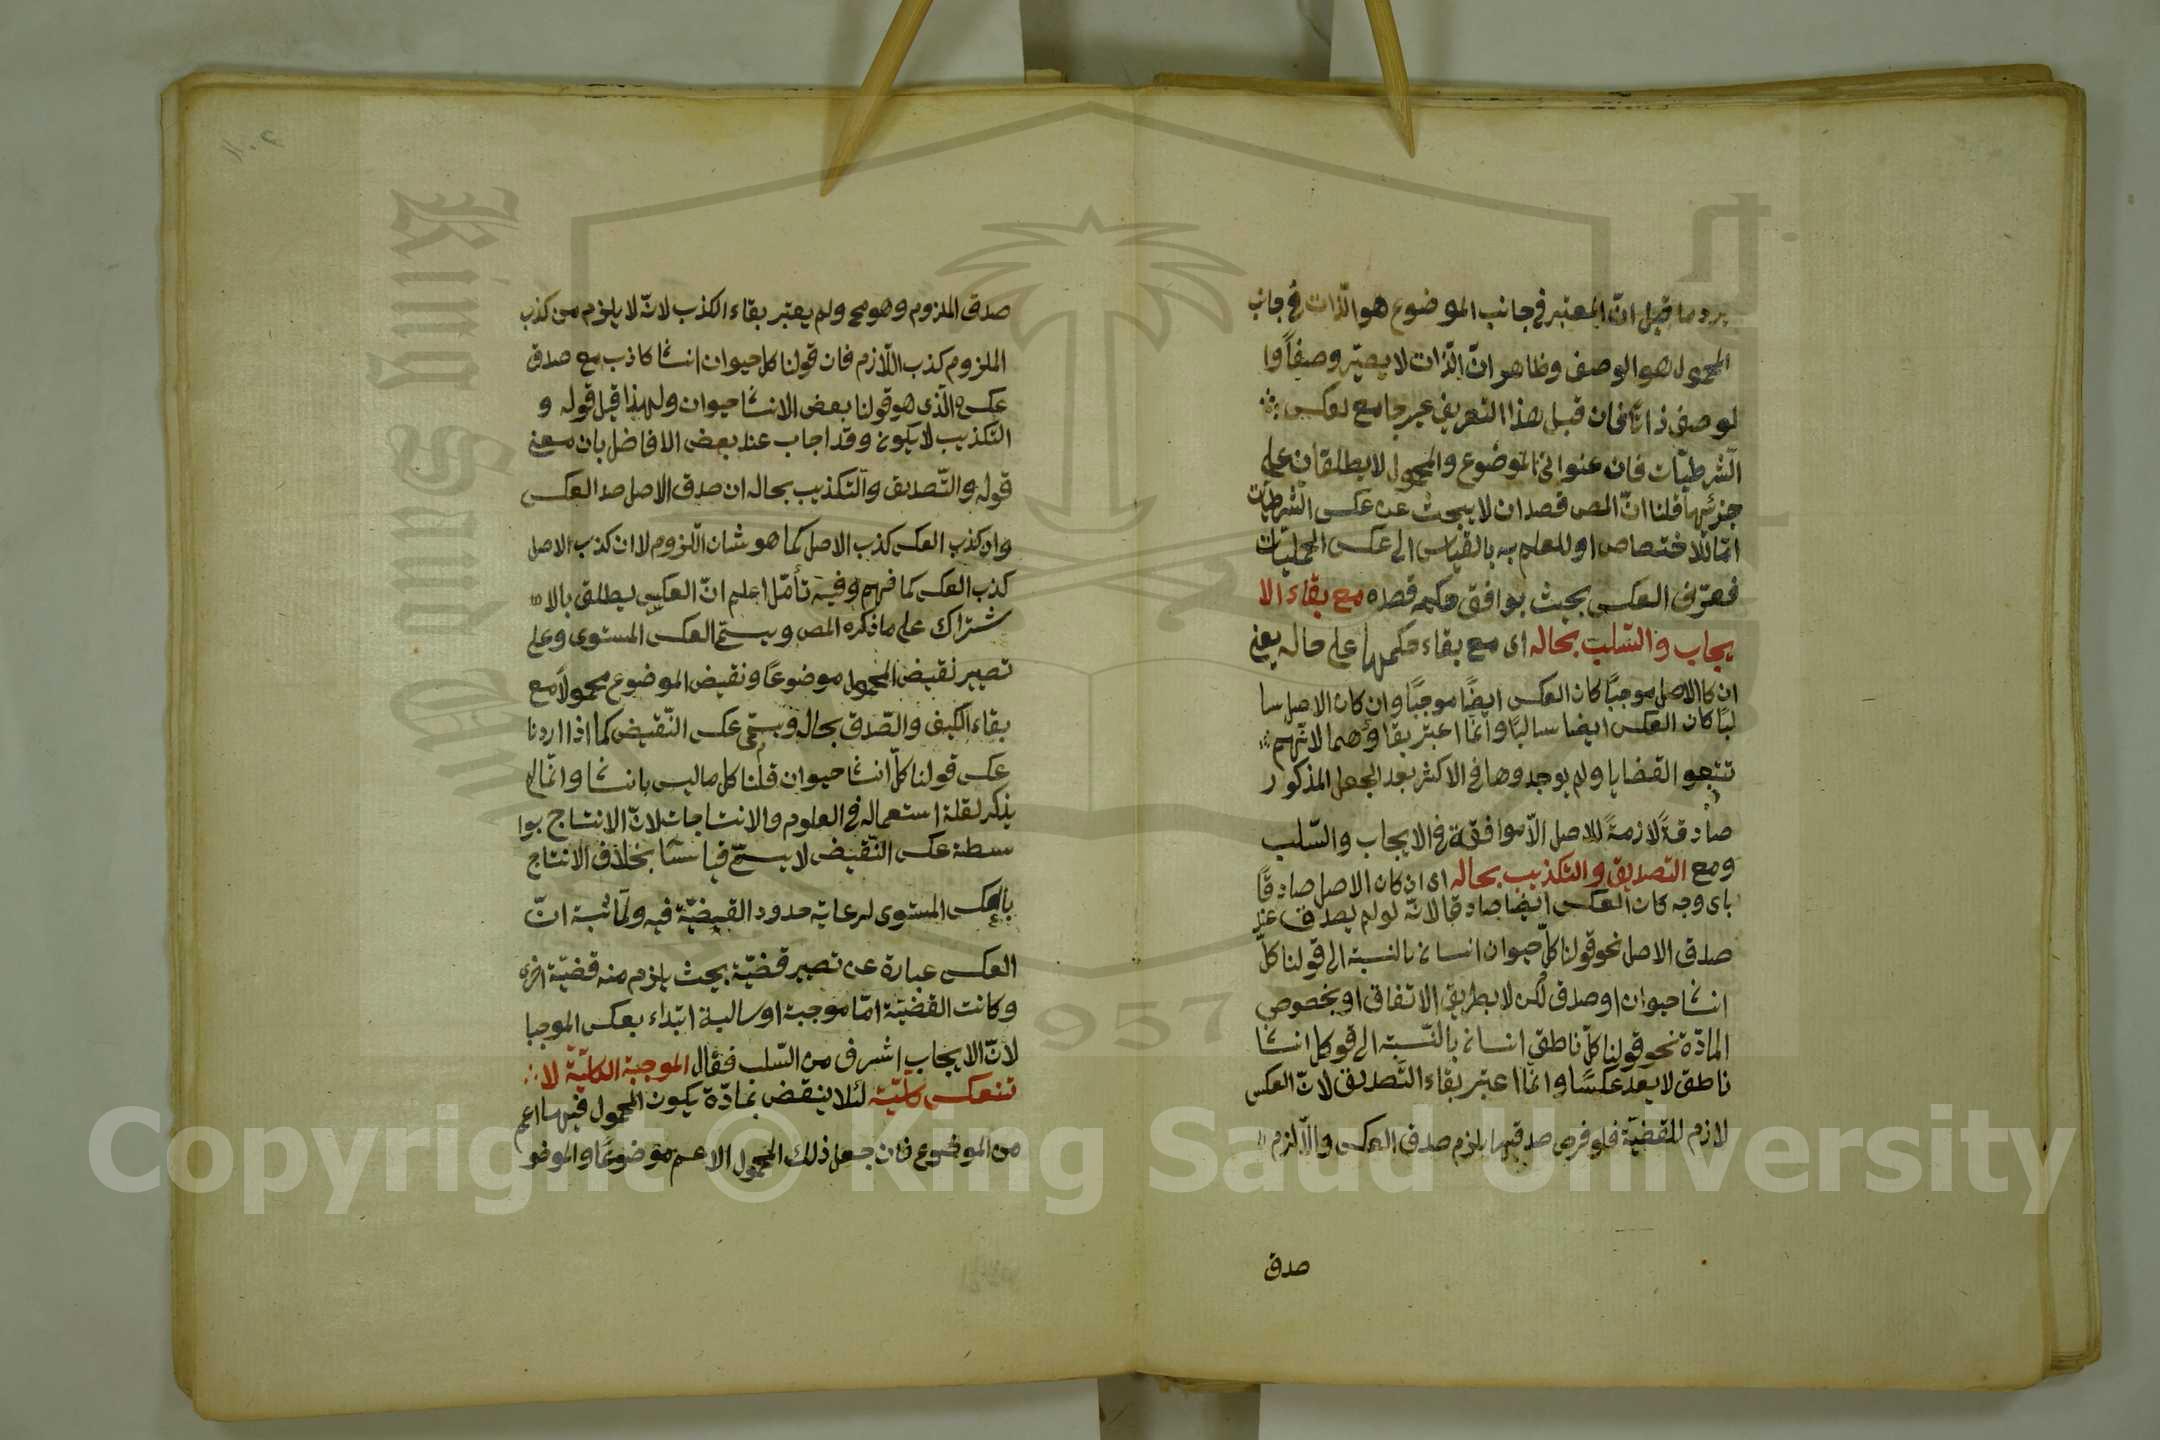 يرد ما قيل انّ المعتبر في جانب الموضوع هو الذات في جانب
المحمول هو الوصف وظاهر انّ الذات لا يصير وصفاً وا
لوصف ذاتاً فان قيل هذا التعريف غير جامع لعكس
الشرطيّات فان عنواني الموضوع والمحمول لا يطلقان على
جزئيها قلنا انّ المص قصد ان لا يبحث عن عكس الشرطيّات
امّا للاختصاص او للعلم به بالقياس الى عكس الحمليّات
فعرّف العكس بحيث يوافق قصده مع بقاء الا
يجاب والسّلب بحاله اى مع بقاء حكمهما على حاله يعنى
ان كا الاصل موجبًا كان العكس ايضًا موجبًا وان كان الاصل سا
لبًا كان العكس ايضا سالبًا وانّما اعتبر بقاؤهما لانّهم
تتبعو القضايا ولم يوجدوها في الاكثر بعد الجعل المذكور
صادقةً لازمةً للاصل الاّ موافقة في الايجاب والسّلب
ومع التصديق والتكذيب بحاله اى ان كان الاصل صادقًا
باى وجه كان العكس ايضا صادقا لانّه لو لم يصدق عند
صدق الاصل نحو قولنا كلّ حيوان انسان بالنسبة الى قولنا كلّ
انسان حيوان او صدق لكن لا بطريق الاتفاق او بخصوص
المادّة نحو قولنا كلّ ناطق انسان بالنّسبة الى قو كل انسان
ناطق لا يعد عكسًا وانّما اعتبر بقاء التّصديق لانّ العكس
لازم للقضيّة فلو فرض صدقها يلزم صدق العكس والاّ لزم
صدق
صدق الملزوم وهو مح ولم يعتبر بقاء الكذب لانّه لا يلزم من كذب
الملزوم كذب اللّازم فان قولنا كل حيوان انسان كاذب مع صدق
عكسه الّذى هو قولنا بعض الانسان حيوان ولهذا قيل قوله و
التكذيب لا يكون وقد اجاب عنه بعض الافاضل بان معنى
قوله والتّصديق والتكذيب بحاله ان صدق الاصل صد العكس
وان كذب العكس كذب الاصل كما هو شان اللّزوم لا ان كذب الاصل
كذب العكس كما فهم وفيه تأمّل اعلم انّ العكس يطلق بالا
شتراك على ما ذكره المص ويسمّى العكس المستوى وعلى
تصيير نقيض المحمول موضوعًا ونقيض الموضوع محمولاً مع
بقاء الكيف والصّدق بحاله ويسمّى عكس النّقيض كما اذا اردنا
عكس قولنا كلّ انسان حيوان قلنا كل ما ليس بانسان وانّما لم
يذكر لقلة استعماله في العلوم والانتاجات لانّ الانتاج بوا
سطة عكس النّقيض لا يسمّى قياسًا بخلاف الانتاج
بالعكس المستوى لرعاية حدود القيضيّة فيه ولمّا ثبة انّ
العكس عبارة عن تصيير قضيّة بحيث يلزم منه قضيّة اخرى
وكانت القضيّة امّا موجبة او سالبة ابتداء بعكس الموجبا
لانّ الايجاب اشرف من السّلب فقال الموجبة الكليّة لا
تنعكس كلّيّة لئلا ينقض بمادّة يكون المحمول فيها اعم
من الموضوع فان جعل ذلك المحمول الاعم موضوعًا والموضو
King Saud University
1957
Copyright © King Saud University